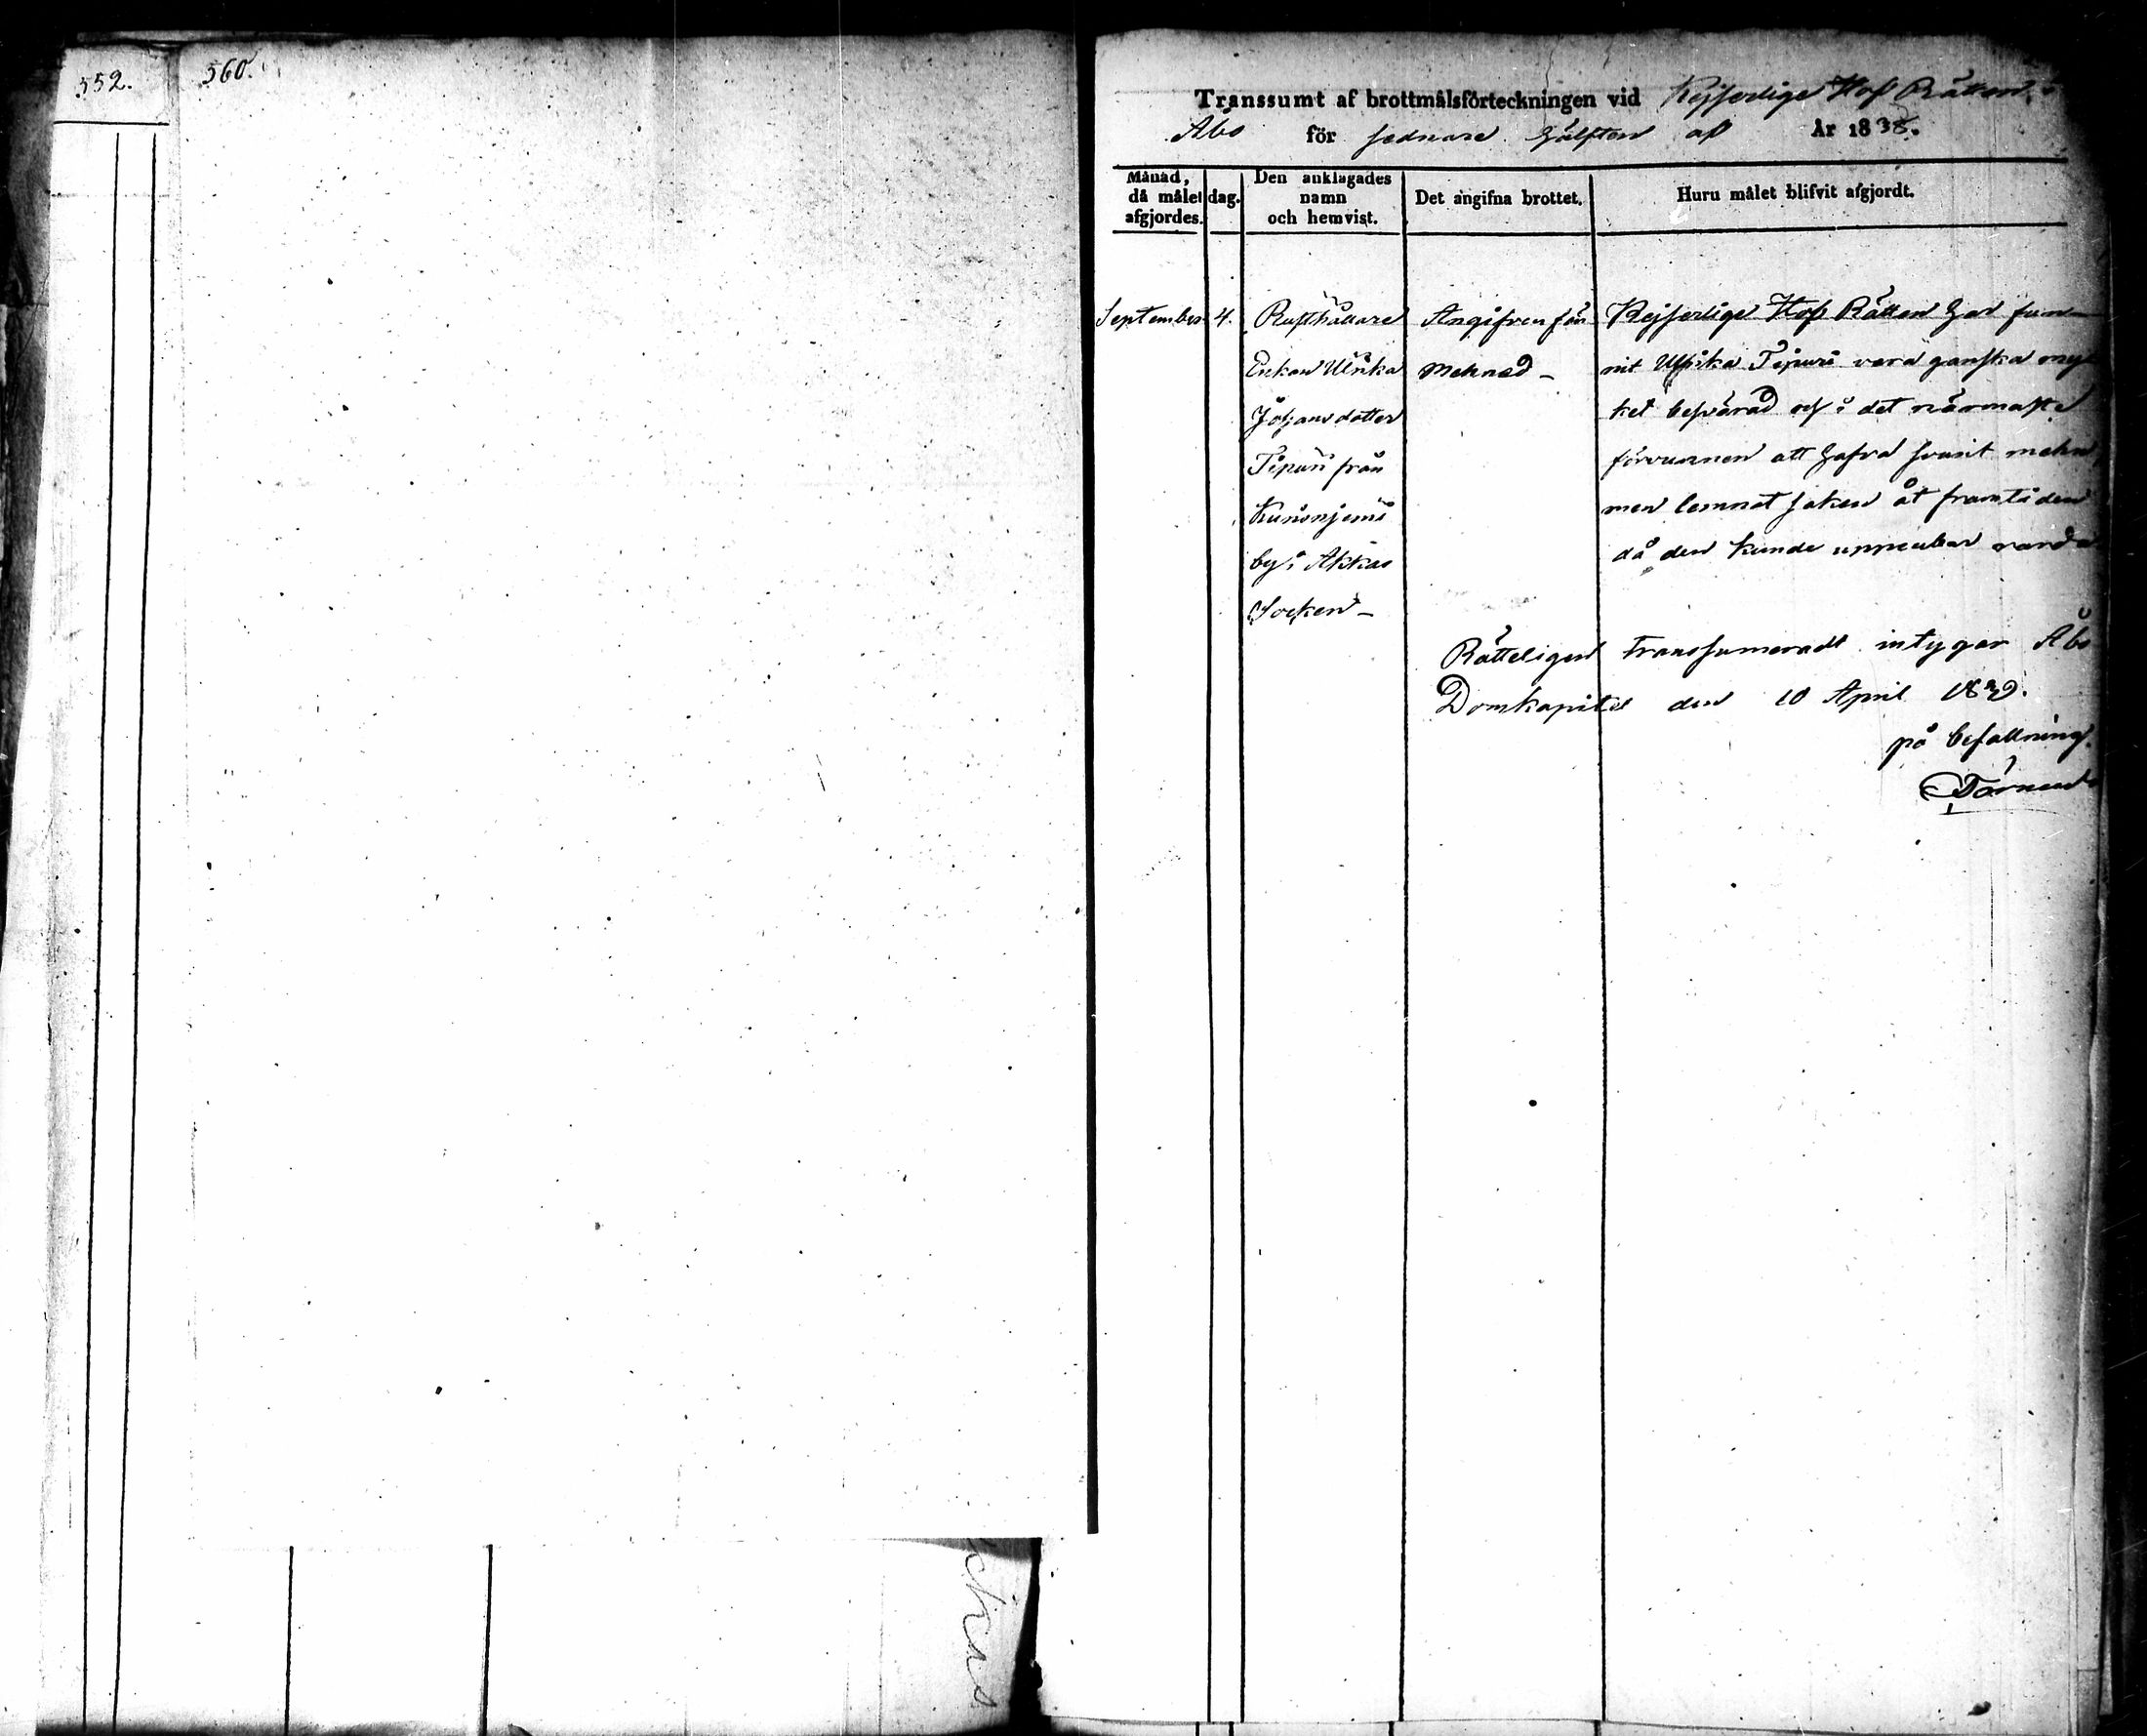 552.
560.
Transsumt af brottmålsförteckningen vid Kejserlige Hof Rätten i
Åbo för sednare hälften af År 1838.
Månad, då målet afgjordes.
dag.
Den anklagades namn och hemvist.
Det angifna brottet.
Huru målet blifvit afgjordt.
September
4.
Rusthållare
Enkan Ulrika
Johansdotter
Tipuri från
by i Akkas
Socken –
Angifven för
mehned –
Kejserlige Hof Rätten har fun-
nit Ulrika Tipuri vara ganska myc-
ket besvärad och i det närmaste
förvunnen att hafva svurit mehn
men lemnat saken åt framtiden
då den kunde uppenbar varda
Rätteligen transsumeradt intygar Åbo
Domkapitel den 10 April 1839.
på befallning.
ckas